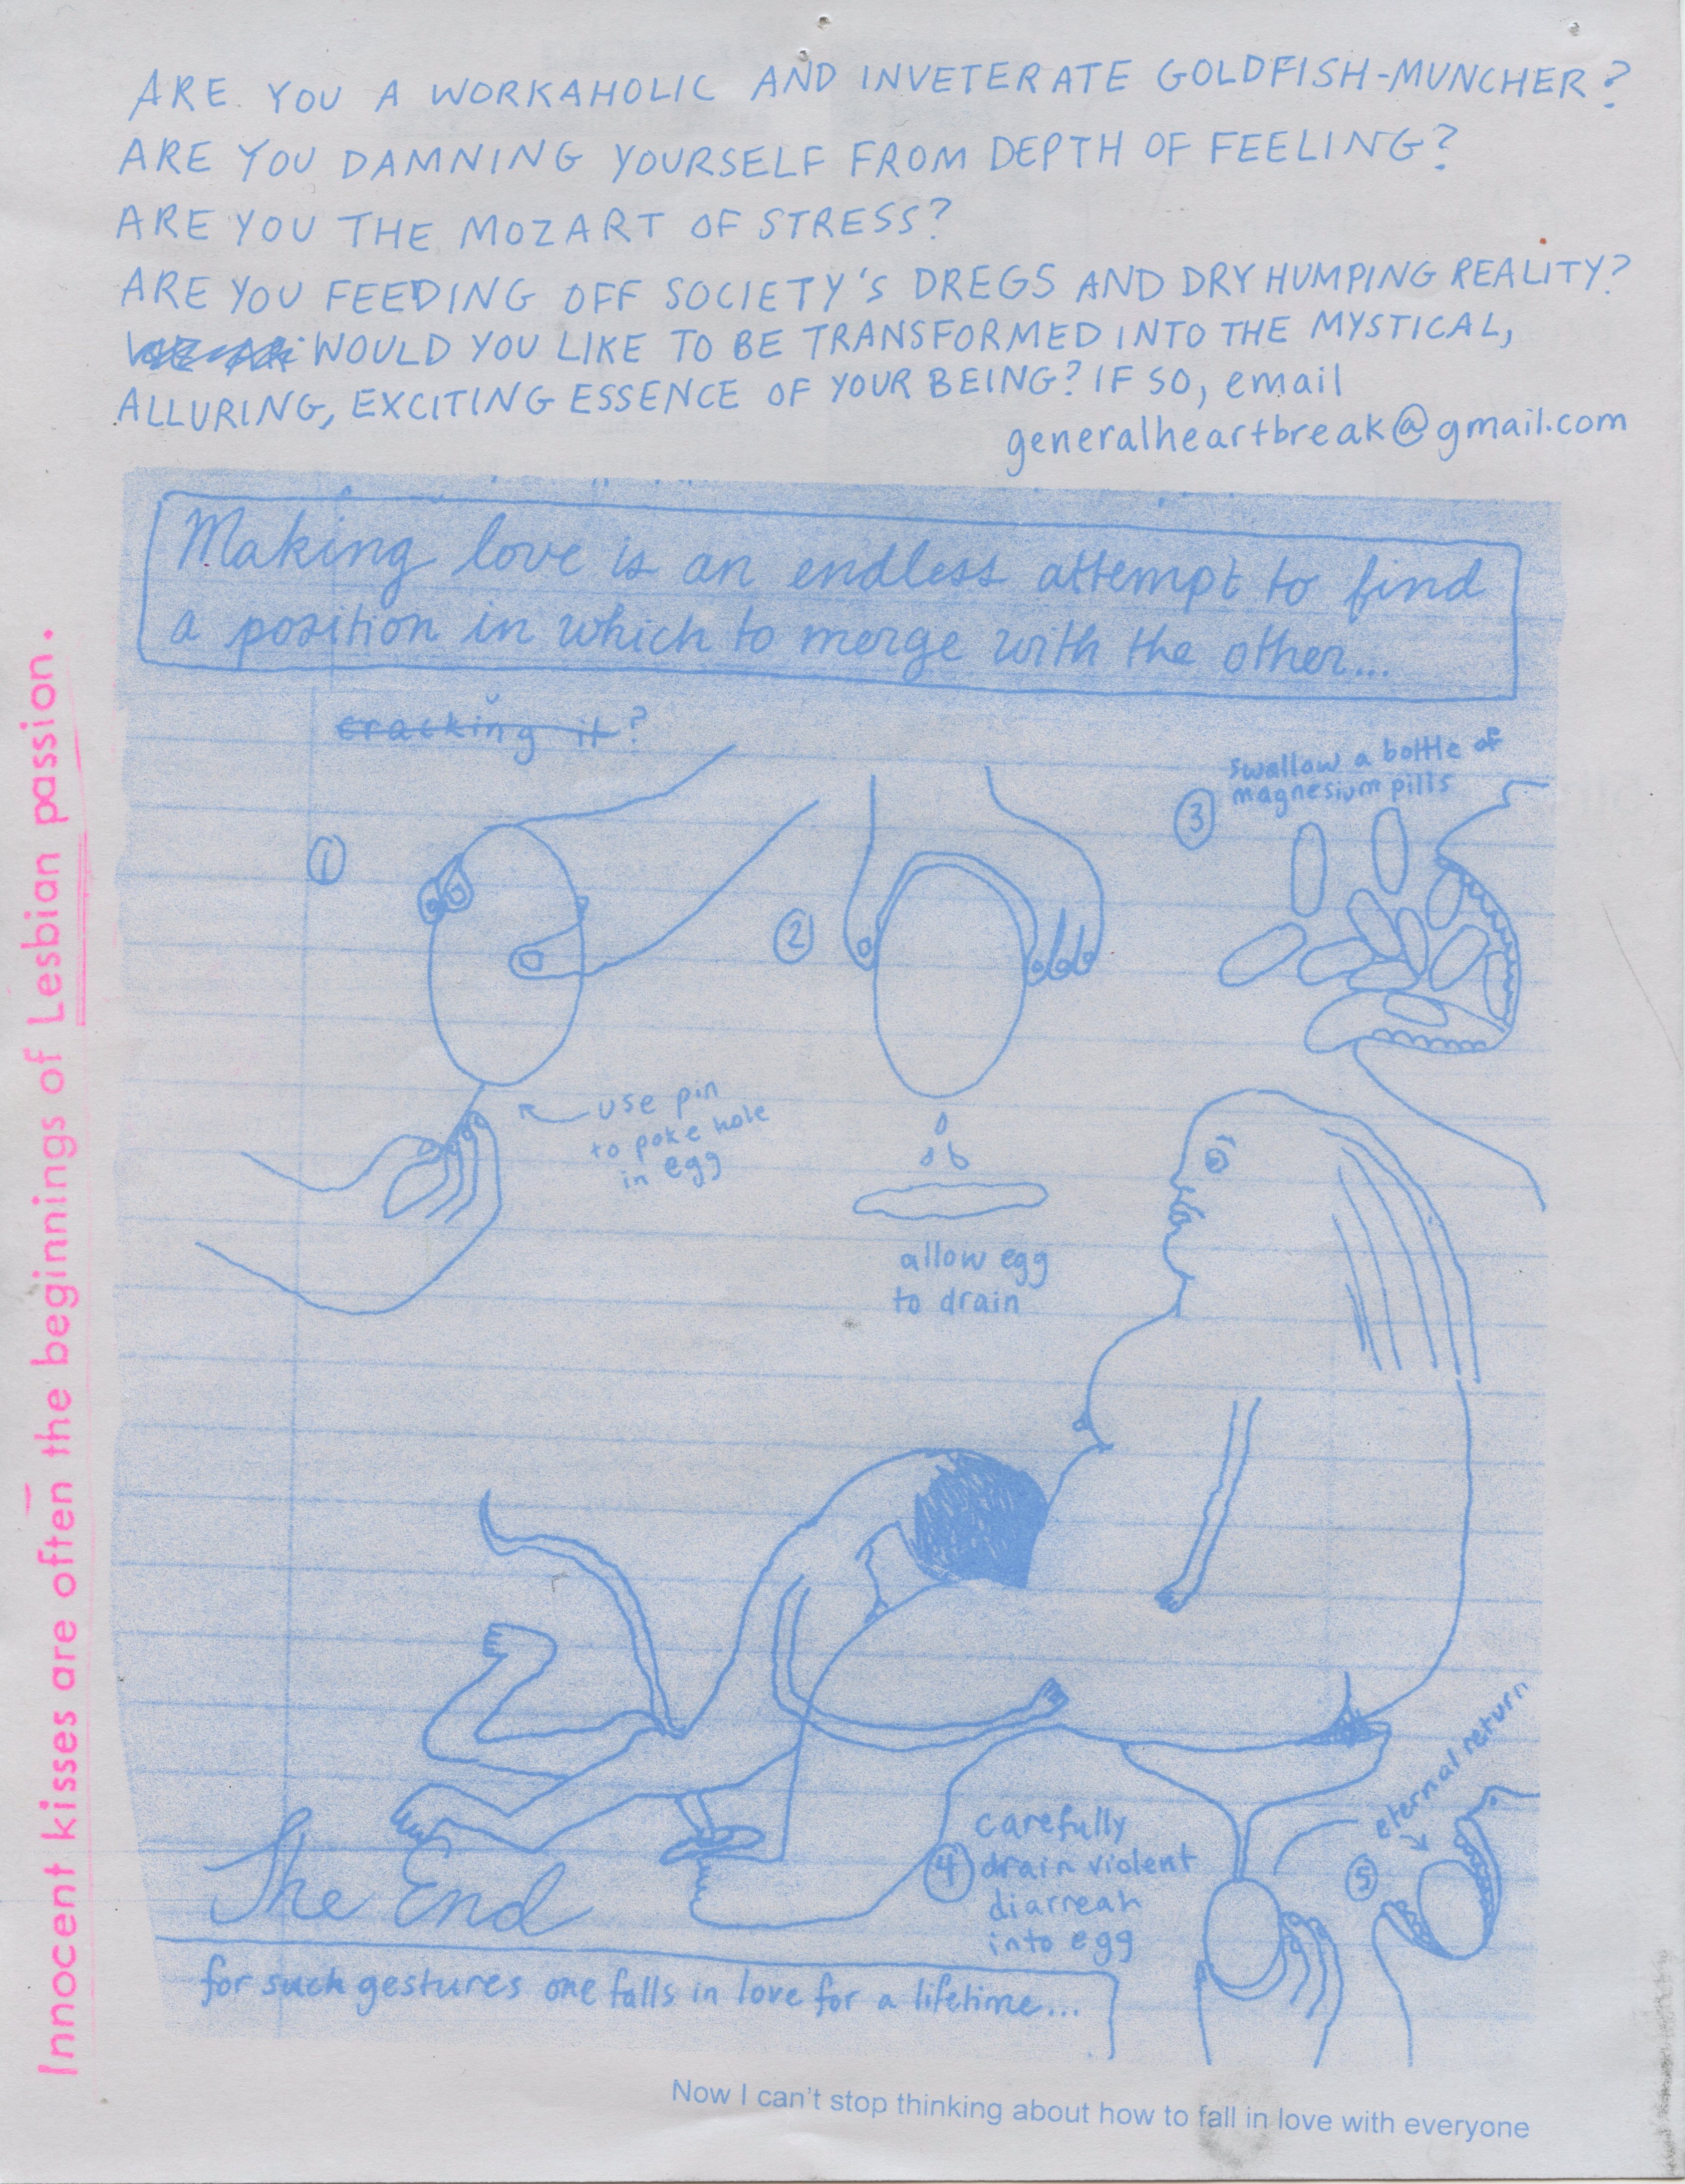 ARE YOU A WORKAHOLIC AND INVETERATE GOLDFISH-MUNCHER?
ARE YOU DAMNING YOURSELF FROM DEPTH OF FEELING?
ARE YOU THE MOZART OF STRESS?
ARE YOU FEEDING OFF SOCIETY'S DREGS AND DRY HUMPING REALITY?
WOULD YOU LIKE TO BE TRANSFORMED INTO THE MYSTICAL,
ALLURING, EXCITING ESSENCE OF YOUR BEING? IF SO, email
generalheartbreak@gmail.com
Making love is an endless attempt to find
a position in which to merge with the other...
cracking it?
1
use pin
to poke hole
in egg
2
allow egg
to drain
3
swallow a bottle of
magnesium pills
carefully
4 drain violent
diarreah
into egg
5
eternal return
The End
for such gestures one falls in love for a lifetime...
Now I can't stop thinking about how to fall in love with everyone
Innocent kisses are often the beginnings of Lesbian passion.